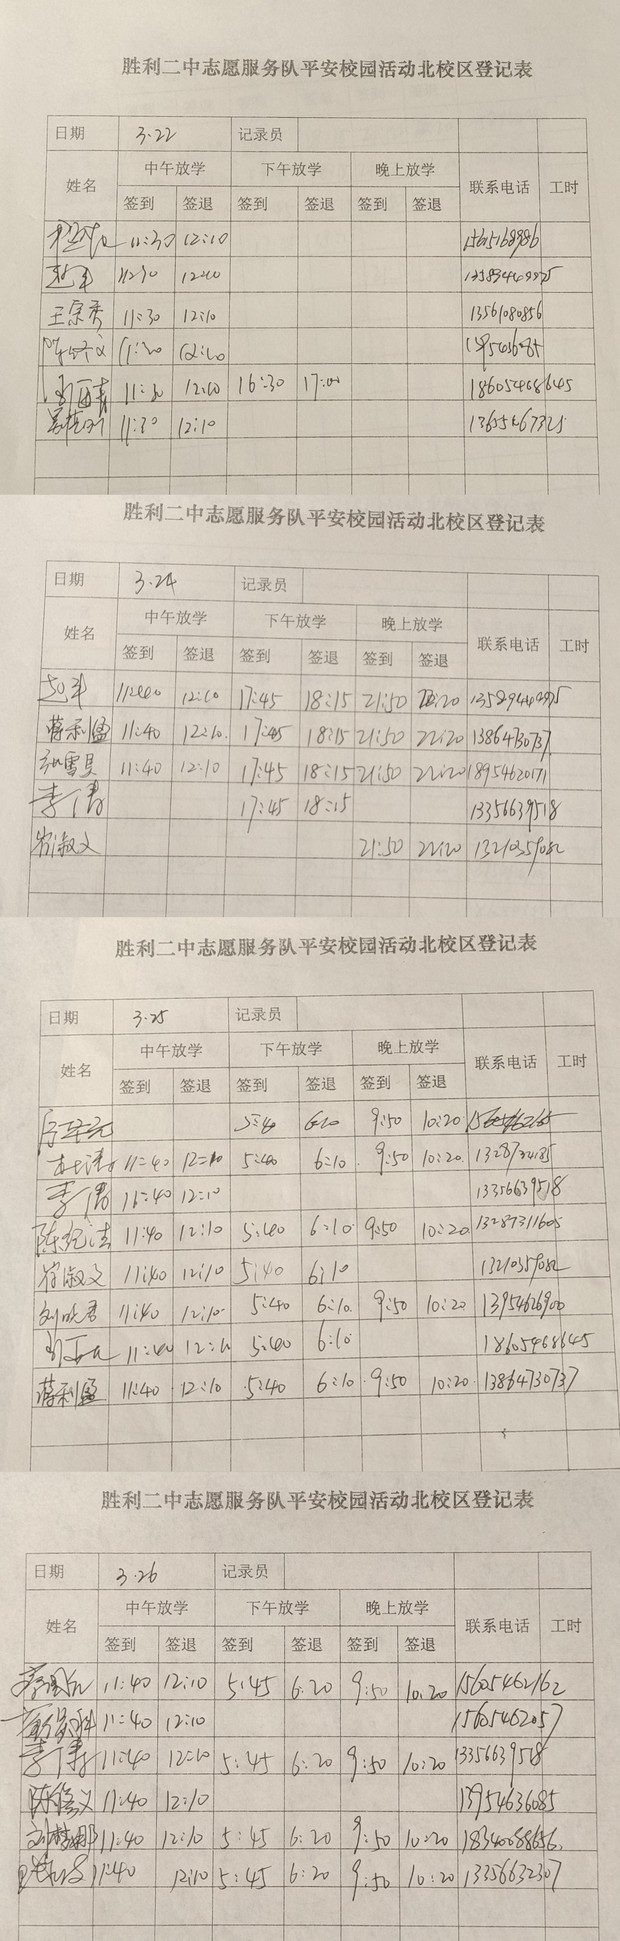 胜利二中志愿服务队平安校园活动北校区登记表
日期 3.22 记录员
姓名 中午放学 下午放学 晚上放学 联系电话 工时
签到 签退 签到 签退 签到 签退
11:30 12:10
11:30 12:10
王宗秀 11:30 12:10 13561080856
11:30 12:10
11:30 12:10 16:30 17:00 18605468645
11:30 12:10 13655467325
胜利二中志愿服务队平安校园活动北校区登记表
日期 3.24 记录员
姓名 中午放学 下午放学 晚上放学 联系电话 工时
签到 签退 签到 签退 签到 签退
11:40 12:10 17:45 18:15 21:50 22:20
蒋利盈 11:40 12:10 17:45 18:15 21:50 22:20 13864730737
11:40 12:10 17:45 18:15 21:50 22:20 18954620171
李倩 17:45 18:15 13356639518
崔淑文 21:50 22:20 13210359082
胜利二中志愿服务队平安校园活动北校区登记表
日期 3.25 记录员
姓名 中午放学 下午放学 晚上放学 联系电话 工时
签到 签退 签到 签退 签到 签退
5:40 6:10 9:50 10:20
11:40 12:10 5:40 6:10 9:50 10:20
李倩 11:40 12:10 13356639518
11:40 12:10 5:40 6:10 9:50 10:20 13287311605
崔淑文 11:40 12:10 5:40 6:10 13210359082
刘晓君 11:40 12:10 5:40 6:10 9:50 10:20 13954626900
11:40 12:10 5:40 6:10 18605468645
蒋利盈 11:40 12:10 5:40 6:10 9:50 10:20 13864730737
胜利二中志愿服务队平安校园活动北校区登记表
日期 3.26 记录员
姓名 中午放学 下午放学 晚上放学 联系电话 工时
签到 签退 签到 签退 签到 签退
11:40 12:10 5:45 6:20 9:50 10:20 15605462162
11:40 12:10 15605462057
李倩 11:40 12:10 5:45 6:20 9:50 10:20 13356639518
11:40 12:10 13954636085
刘梦娜 11:40 12:10 5:45 6:20 9:50 10:20 18340088656
11:40 12:10 5:45 6:20 9:50 10:20 13356632307